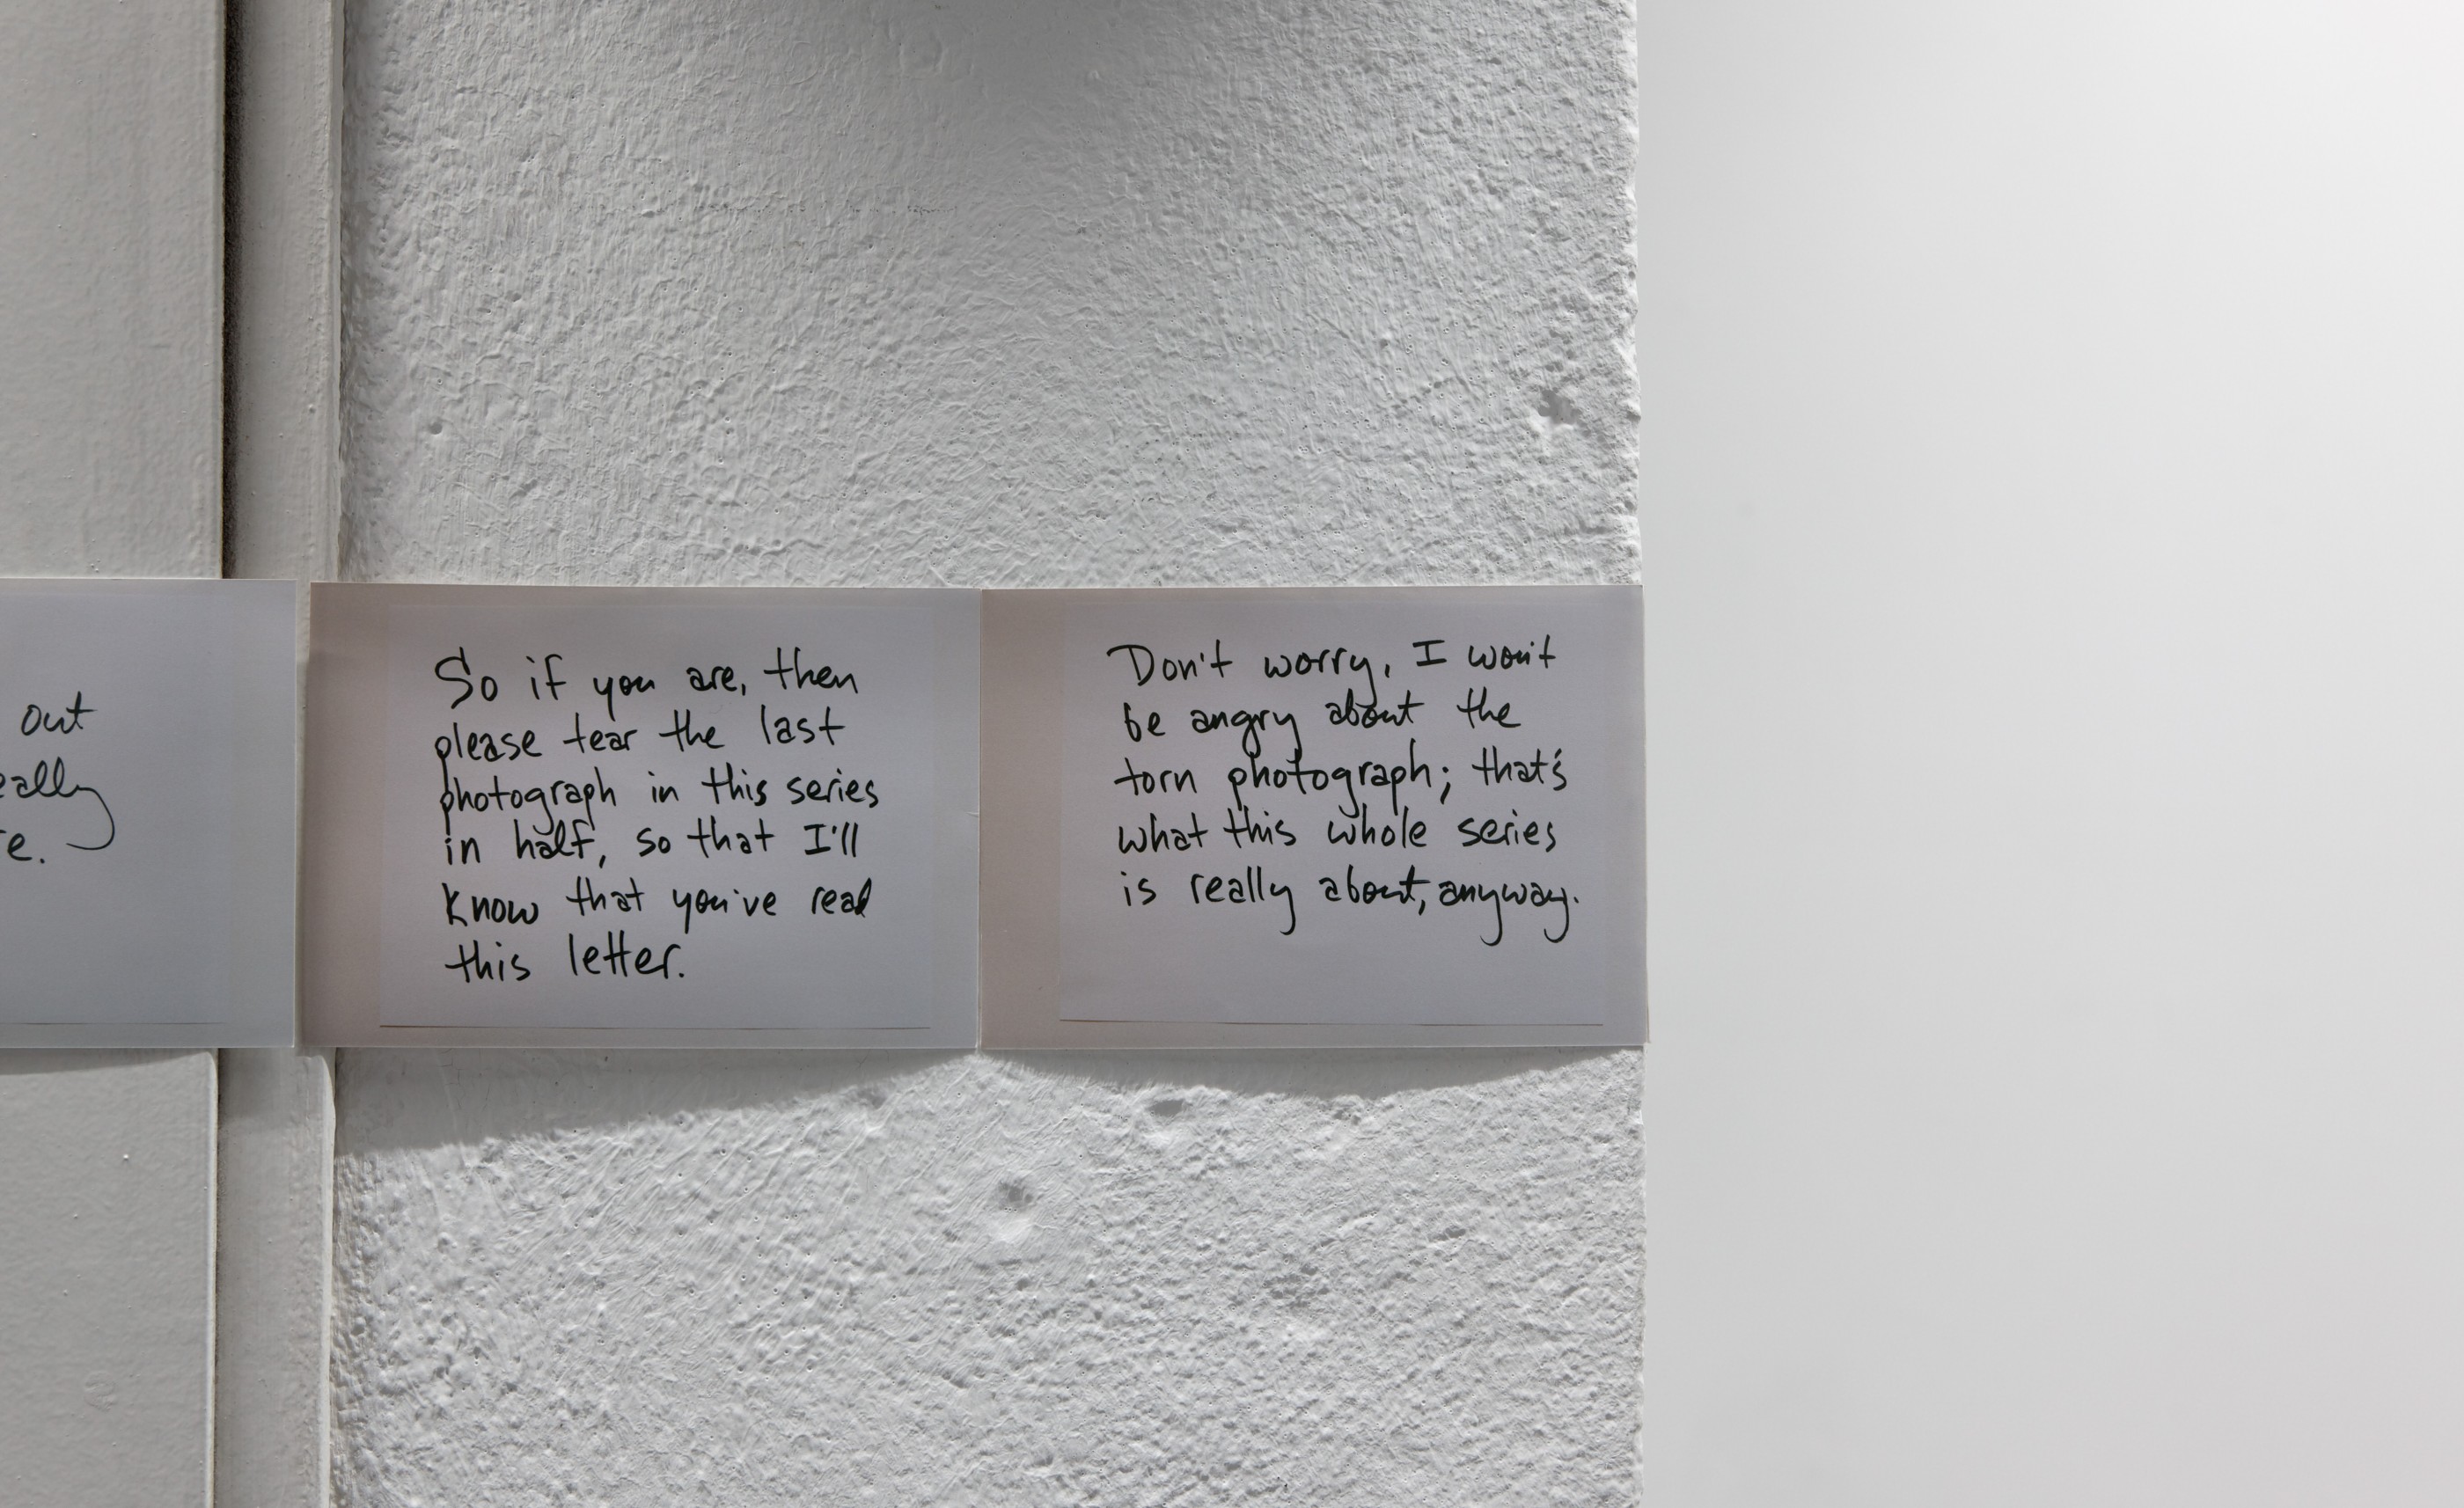 out
So if you are, then
please tear the last
photograph in this series
in half, so that I'll
know that you've read
this letter.
Don't worry, I won't
be angry about the
torn photograph; that's
what this whole series
is really about, anyway.